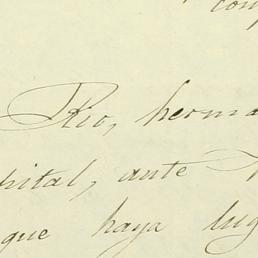 con
Rio, herma
pital, ante
que haya lug